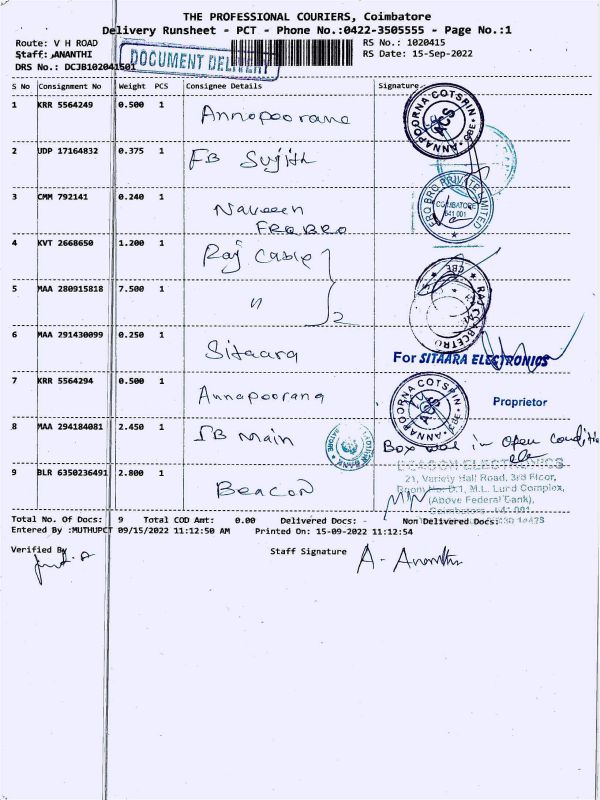 THE PROFESSIONAL COURIERS, Coimbatore
Delivery Runsheet - PCT - Phone No.:0422-3505555 - Page No.:1
Route: V H ROAD
RS No.: 1020415
Staff: ANANTHI
RS Date: 15-Sep-2022
DOCUMENT DELIVERY
DRS No.: DCJB102041501
S No Consignment No Weight PCS Consignee Details Signature
1 KRR 5564249 0.500 1 Annapoorana
ANNAPOORNA COTSPIN ACS CBE
2 UDP 17164832 0.375 1 FB Sujith
3 CMM 792141 0.240 1 Naveen
FRO BRO
FRO BRO PRIVATE LIMITED COIMBATORE 641 001
4 KVT 2668650 1.200 1 Raj Cable
5 MAA 280915818 7.500 1 " 2
CBE
6 MAA 291430099 0.250 1 Sitaara
For SITAARA ELECTRONICS
7 KRR 5564294 0.500 1 Annapoorana
ANNAPOORNA COTSPIN ACS CBE
Proprietor
8 MAA 294184081 2.450 1 IB Main
Box was in open condition
9 BLR 6350236491 2.800 1 Beacon
BEACON ELECTRONICS
21, Variety Hall Road, 3rd Floor,
Room No: D.1, M.L. Lund Complex,
(Above Federal Bank),
Coimbatore - 641 001
Total No. Of Docs: 9 Total COD Amt: 0.00 Delivered Docs: - Non Delivered Docs:
Entered By :MUTHUPCT 09/15/2022 11:12:50 AM Printed On: 15-09-2022 11:12:54
Verified By
Staff Signature A. Ananthi